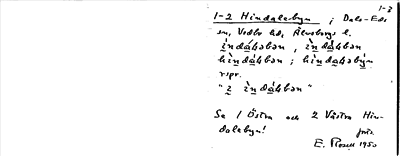 1-3
1-2 Hindalebyn ; Dals-Eds
sn, Vedbo hd, Älvsborgs l.
ìndáhəbən, ìndáhbən
hìndáhbən ; hìndáhəbýn
rspr.
"i ìndáhbən"
Se 1 Östra och 2 Västra Hin-
dalebyn!
E. Rosell 1950